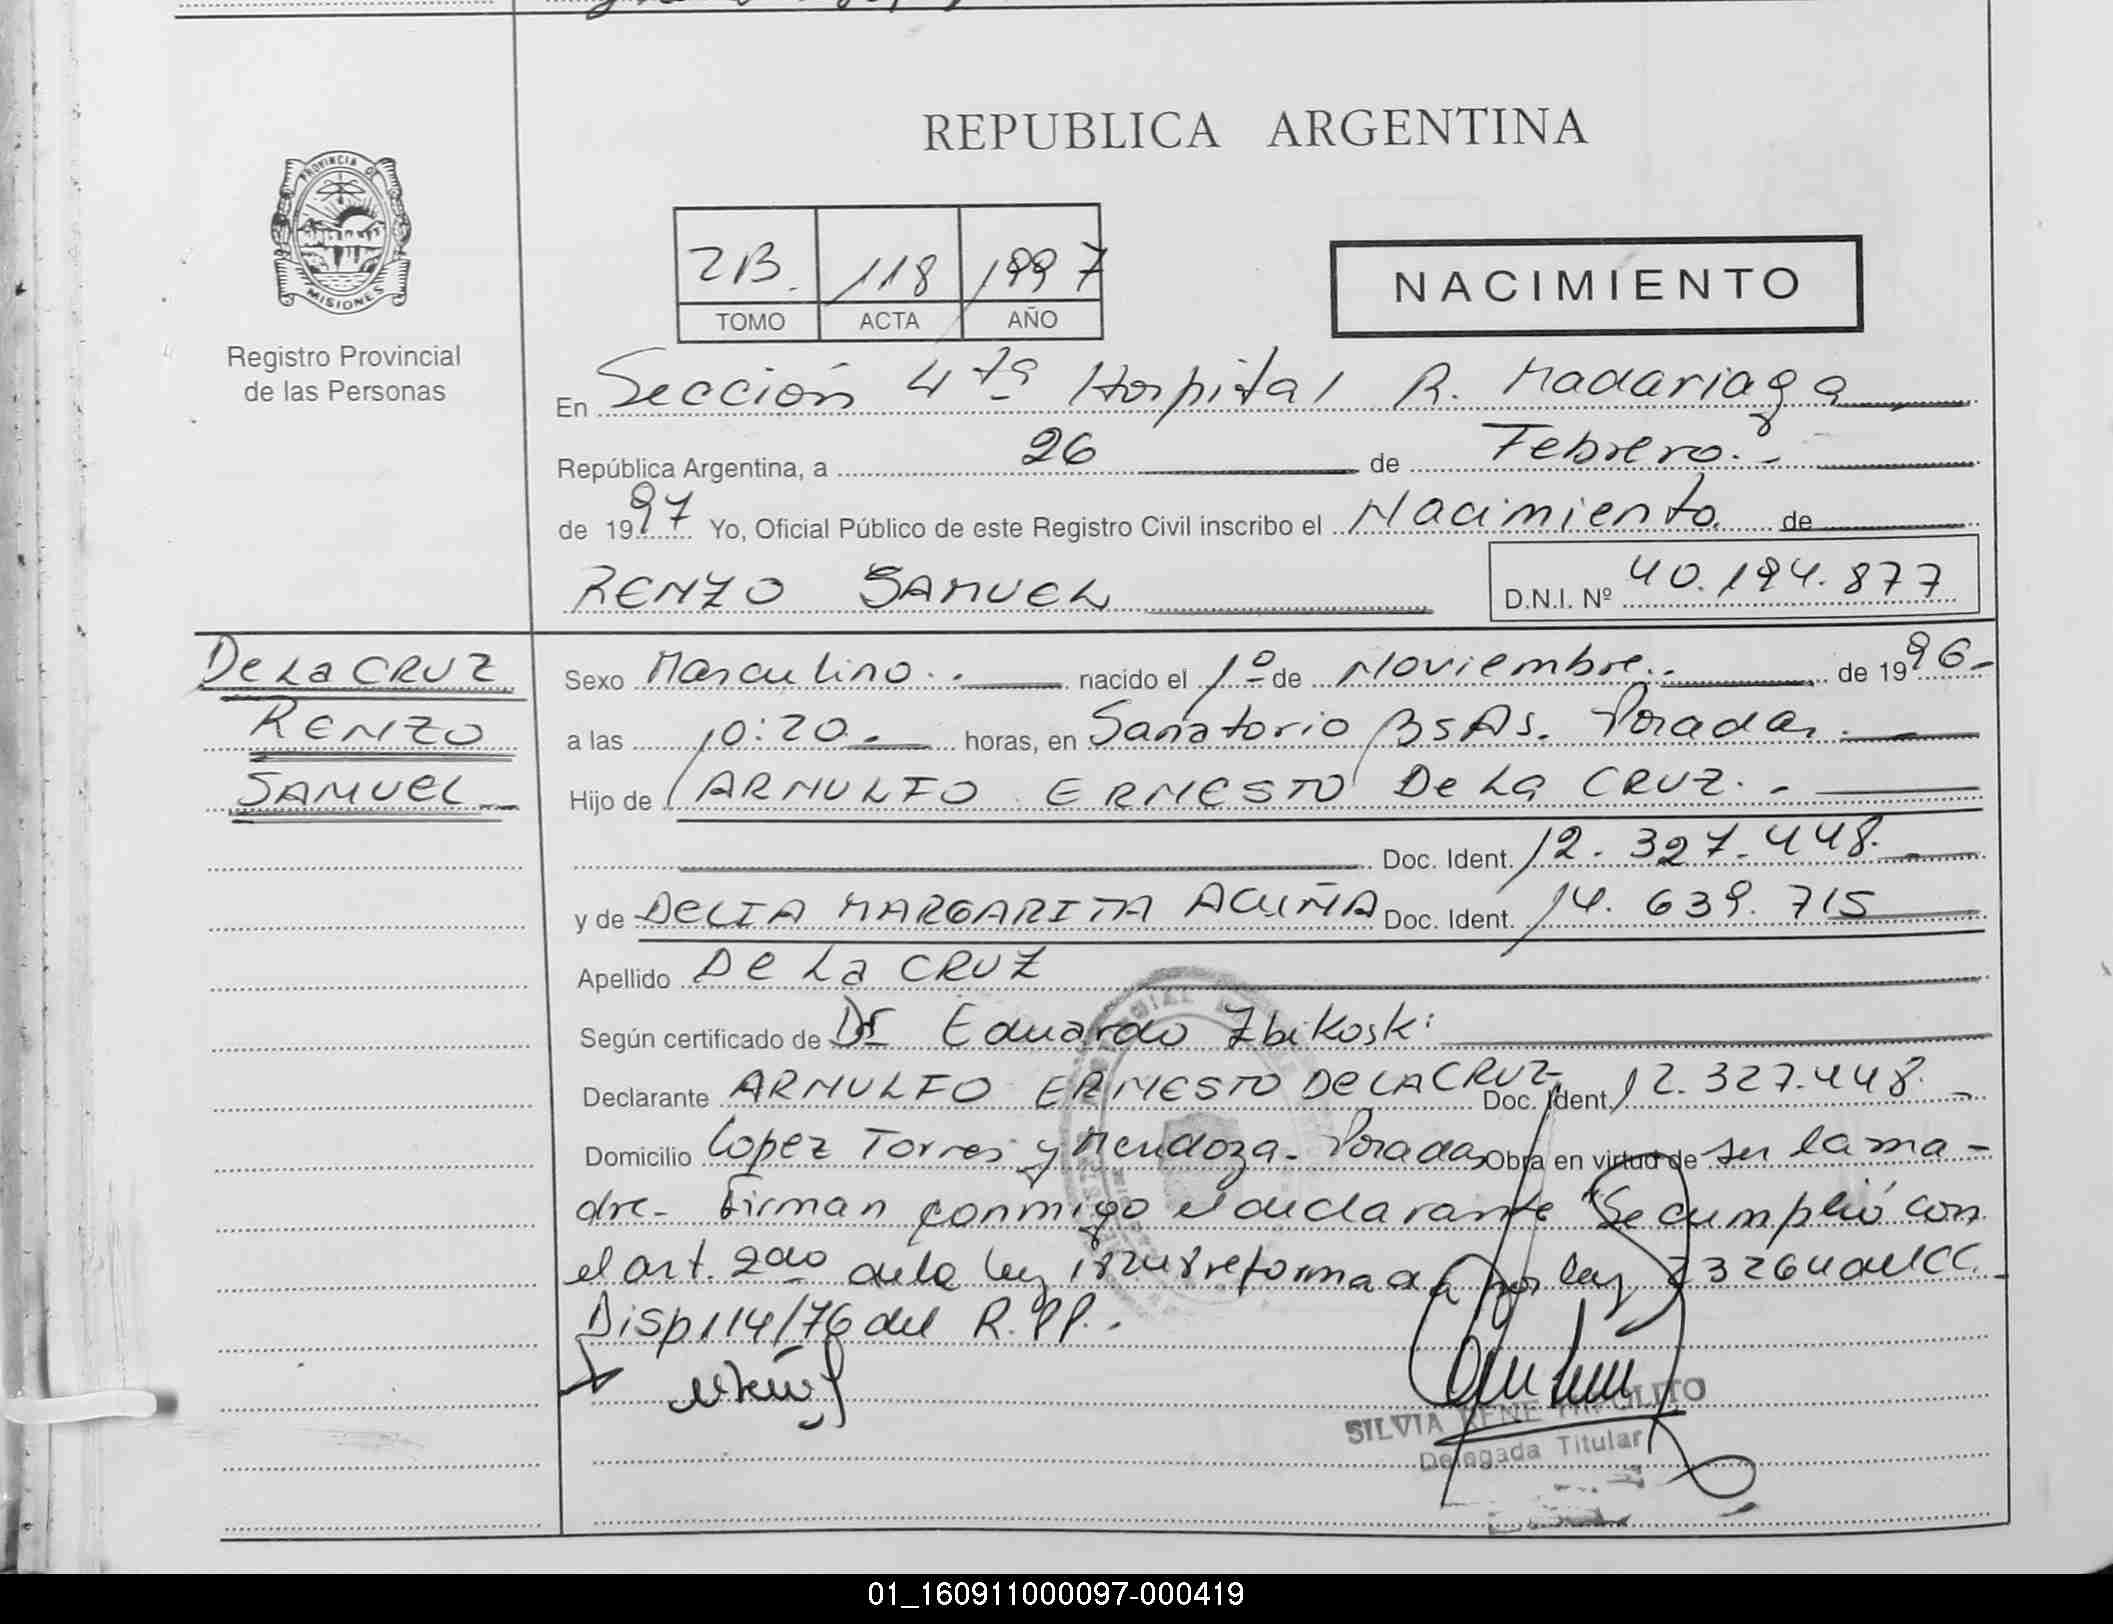 REPUBLICA ARGENTINA
PROVINCIA DE
MISIONES
Registro Provincial
de las Personas
2B. 118 1997
TOMO ACTA AÑO
NACIMIENTO
En Sección 4ta Hospital R. Madariaga
República Argentina, a 26 de Febrero.
de 1997 Yo, Oficial Público de este Registro Civil inscribo el Nacimiento de
RENZO SAMUEL
D.N.I. Nº 40.194.877
De La CRUZ
RENZO
SAMUEL
Sexo Masculino. nacido el 1º de Noviembre. de 1996.
a las 10:20. horas, en Sanatorio Bs As. Posadas.
Hijo de ARNULFO ERNESTO De La CRUZ.
Doc. Ident. 12.327.448.
y de DELIA MARGARITA ACUÑA Doc. Ident. 14.639.715
Apellido De La CRUZ
Según certificado de Dr Eduardo Zbikoski
Declarante ARNULFO ERNESTO DE LA CRUZ Doc. Ident. 12.327.448.
Domicilio Lopez Torres y Mendoza. Posadas Obra en virtud de ser la ma-
dre- Firman conmigo el declarante "Se cumplió con
el art. 2do de la ley reformada por ley 23264 del CC.
Disp 114/76 del R.PP.
SILVIA RENE HIPOLITO
Delegada Titular
01_160911000097-000419